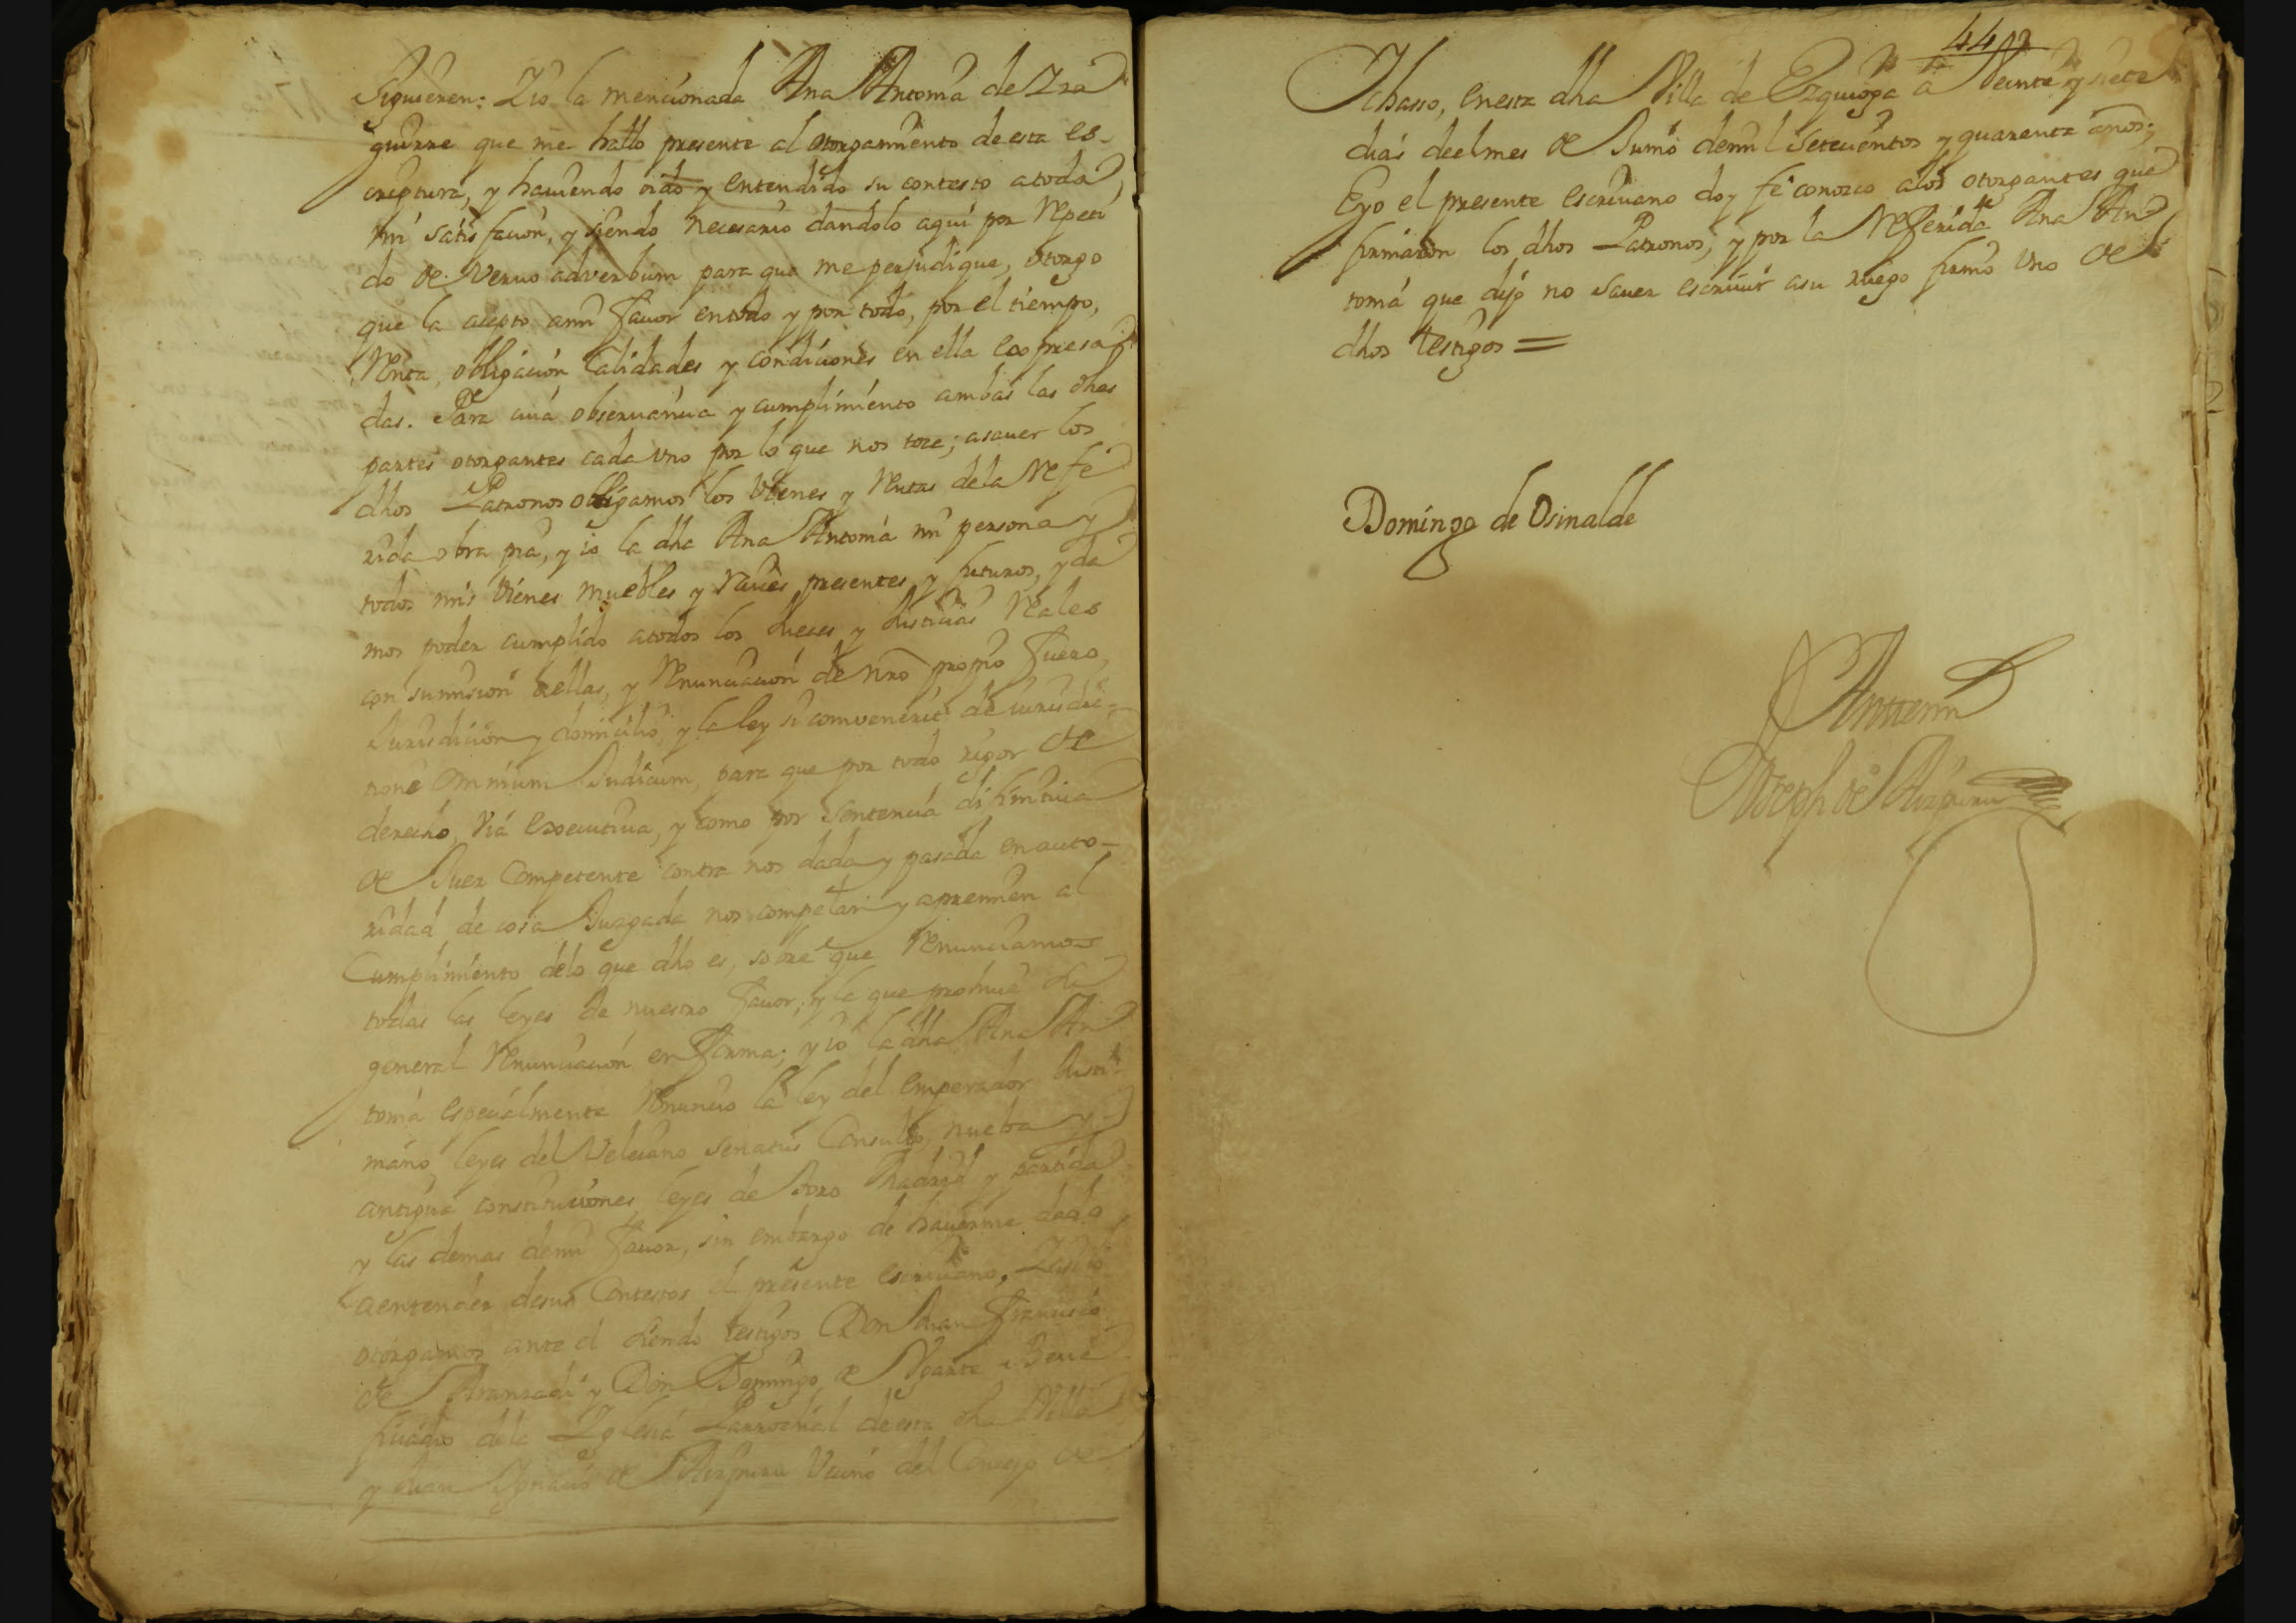 siguieren: Y io la mencionada Ana Antonia de Iza
guirre que me hallo presente al otorgamiento de esta es-
criptura, y haviendo oido y entendido su contesto a toda
mi satisfacion, y siendo necesario dandolo aqui por repeti
do de Veruo adverbum para que me perjudique, otorgo
que la acepto a mi favor en todo y por todo, por el tiempo,
Renta, obligacion Calidades y condiciones en ella expresa
das. Para cuia observancia y cumplimiento ambas las dhas
partes otorgantes cada uno por lo que nos toca; a saver los
dhos Patronos obligamos los Vienes y Rentas de la Refe
rida obra pia, y io la dha Ana Antonia mi persona y
todos mis vienes muebles y raices presentes y futuros, y da
mos poder cumplido a todos los Jueces y Justicias Reales
con sumision a ellas, y Renunciacion de nro propio fuero,
Jurisdicion y domicilio, y la ley si convenerit de iurisdic-
tione omnium Judicum, para que por todo rigor de
derecho, via executiva, y como por sentencia difinitiva
de Juez Competente contra nos dada y pasada en auto-
ridad de cosa Juzgada nos compelan y apremien al
Cumplimiento de lo que dho es, sobre que Renunciamos
todas las leyes de nuestro favor, y la que prohive la
general Renunciacion en forma; y io la dha Ana An
tonia especialmente Renuncio la ley del emperador Justi
niano, leyes del Veleiano Senatus Consulto, nueba y
antigua constituciones, leyes de Toro Madrid y partida
y las demas de mi favor, sin embargo de haverme dado
a entender de sus Contestos el presente escrivano, Y assi lo
otorgamos ante el siendo testigos Don Juan Francisco
de Aranzadi y Don Domingo de Ugarte Bene
ficiados de la Yglesia Parrochial de esta dha Villa
y Juan Ygnacio de Aizpuru Vecino del Concejo de
442
Ichasso, en esta dha Villa de Ezquioga a Veinte y siete
dias de el mes de Junio de mil setecientos y quarenta años;
E yo el presente escrivano doy fe conozco a los otorgantes que
firmaron los dhos Patronos, y por la Referida Ana An
tonia que dijo no saver escrivir a su ruego firmó uno de
dhos testigos =
Domingo de Osinalde
Ante mi
Joseph de Aizpuru